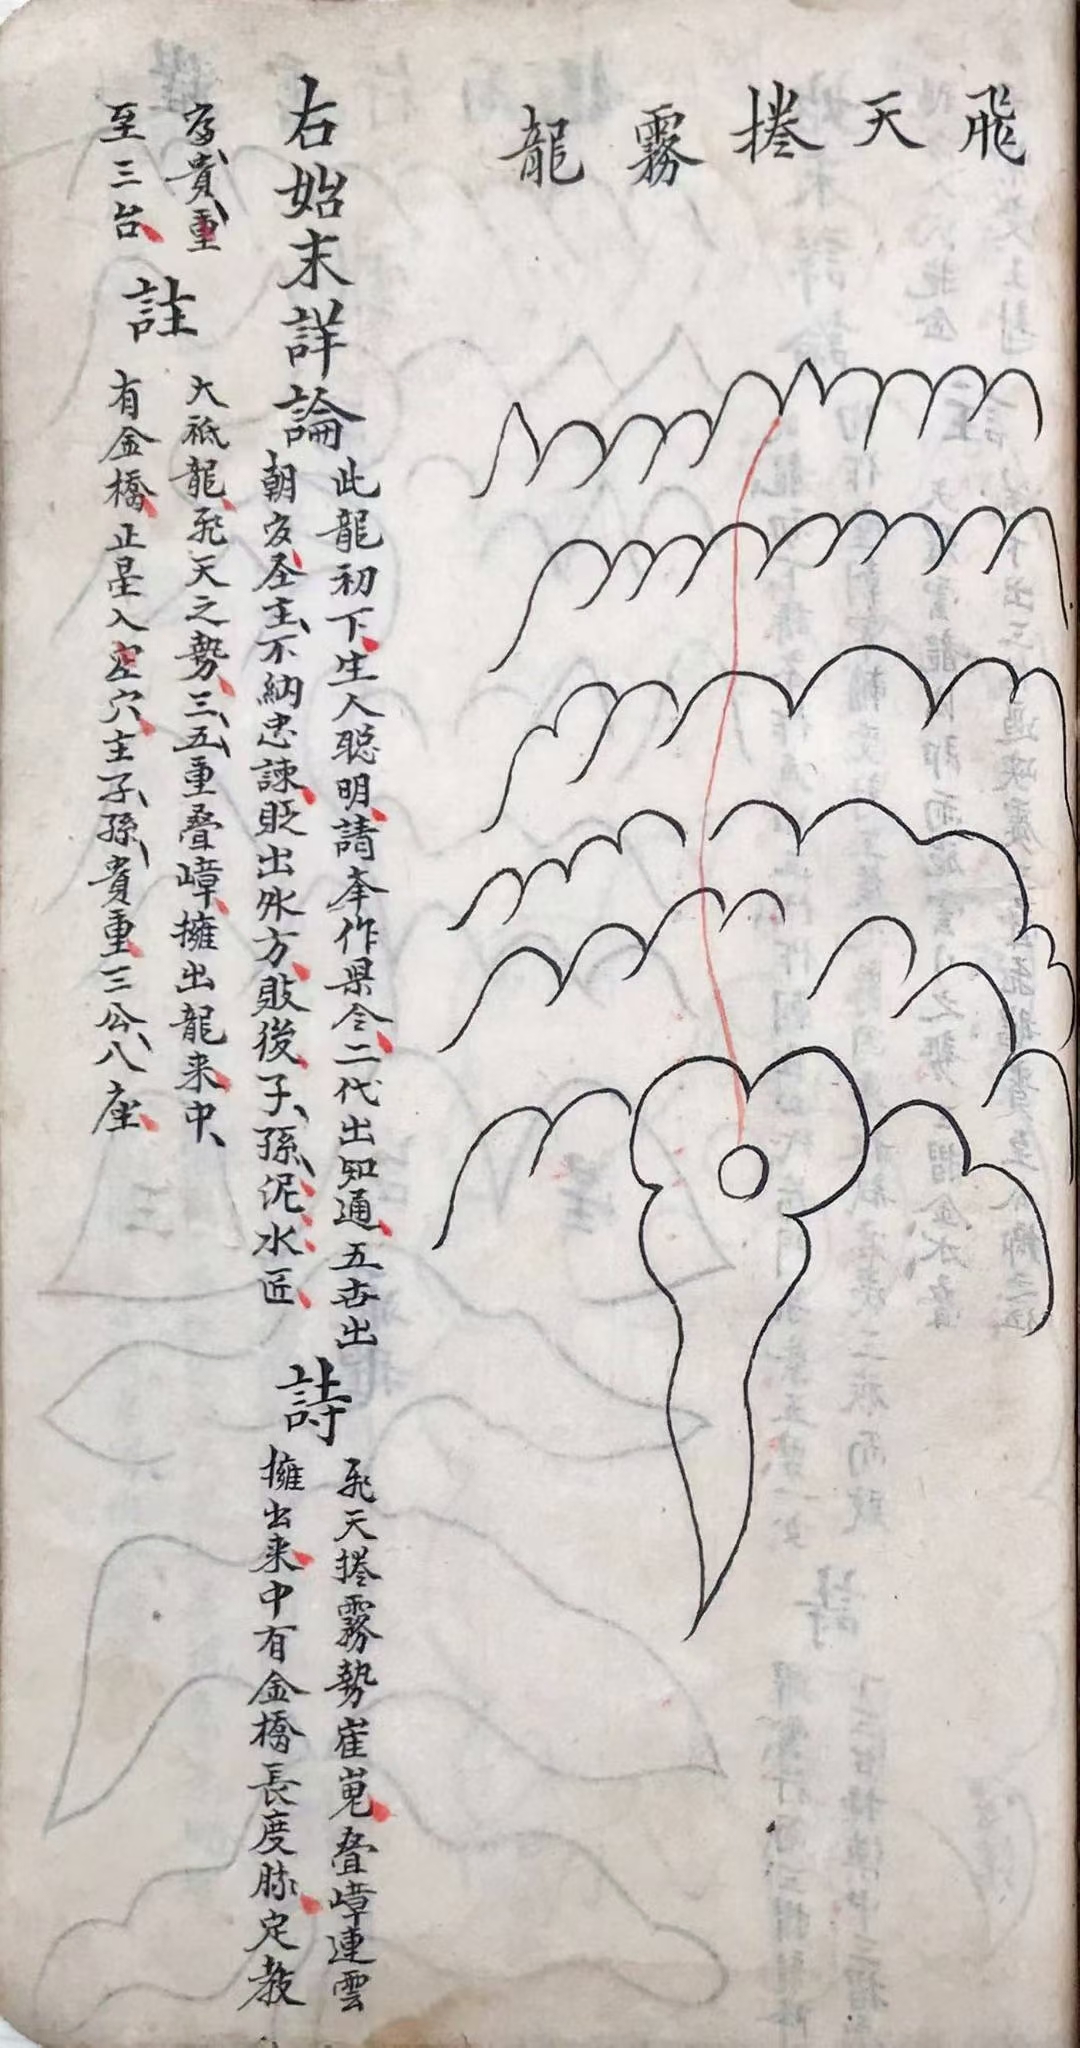 飛天捲霧龍
右始末詳論
此龍初下生人聰明請奎作果今二代出知通五世出
朝友圣主不納忠諫貶出外方敗後子孫泥水匠
詩
飛天捲霧勢崔嵬叠嶂連雲
擁出来中有金橋長度脉定教
貴重
至三台
註
大祗龍飛天之勢三五重叠嶂擁出龍来中
有金橋止是入穴主子孫貴重三公八座